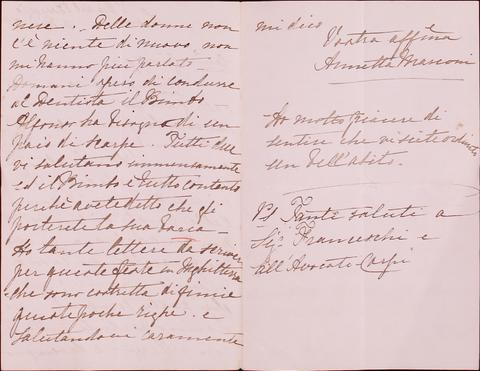 nese. - Delle donne non
c'è niente di nuovo, non
mi hanno più parlato -
Domani spero di condurre
al Dentista il Bimbo -
Alfonso ha bisogno di un
paio di scarpe. Tutti due
vi salutano immensamente
ed il Bimbo è tutto contento
perchè avete detto che gli
porterete la sua
Ho tante lettere da scrivere
per queste feste in Inghilterra
che sono costretta di finire
queste poche righe. e
salutandovi caramente
mi dico
Vostra affma
Annetta Marconi
Ho molto piacere di
sentire che vi siete ordinato
un bell'abito.
PS Tante saluti a
Sigr Franceschi e
all'Avocato Carpi